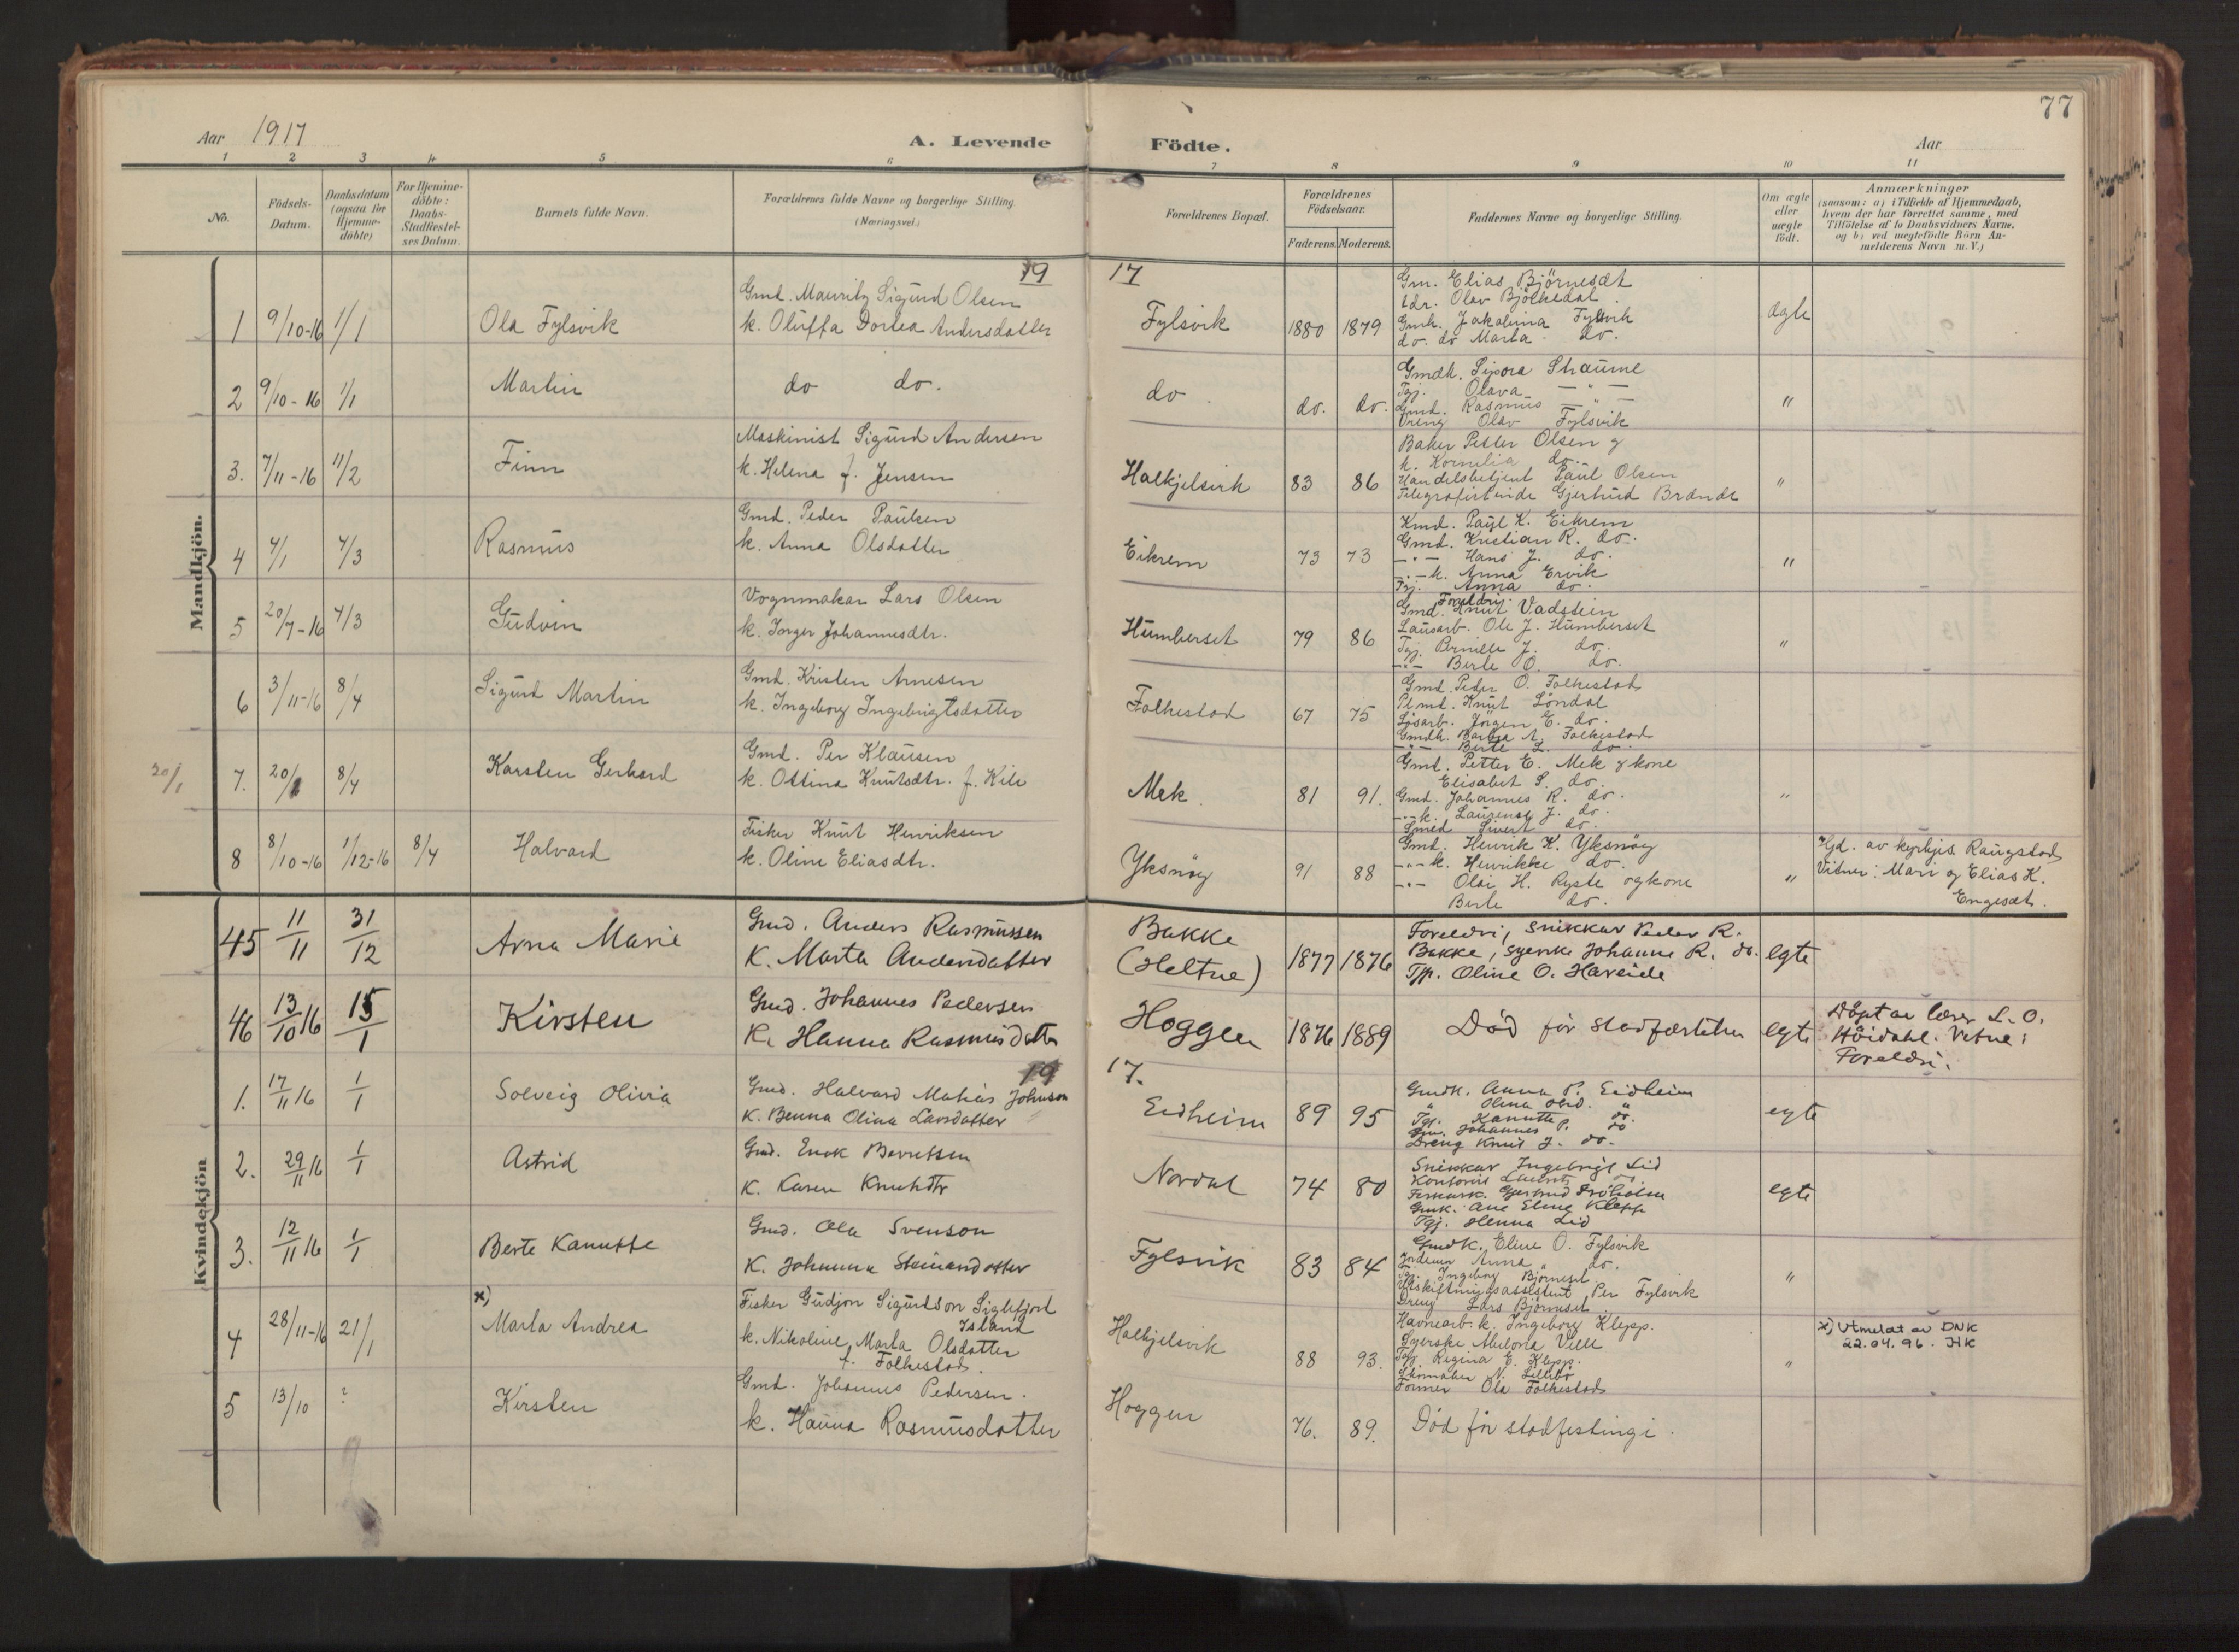 77
Aar 1917
A. Levende Födte.
Aar
1 2 3 4 5 6 7 8 9 10 11
No.
Födsels-Datum.
Daabsdatum (ogsaa for Hjemme-döbte)
For Hjemme-döbte: Daabs-Stadfæstel-ses Datum.
Barnets fulde Navn.
Forældrenes fulde Navne og borgerlige Stilling.
(Næringsvei.)
Forældrenes Bopæl.
Forældrenes Födselsaar.
Faderens. Moderens.
Faddernes Navne og borgerlige Stilling.
Om ægte eller uægte födt.
Anmærkninger
(saasom: a) i Tilfælde af Hjemmedaab,
hvem der har forrettet samme, med
Tilföielse af to Daabsvidners Navne.
og b) ved uægtefödte Börn An-
melderens Navn m. V.)
Mandkjön.
19 17
1 9/10-16 1/1 Ola Fylsvik
Gmd. Mauritz Sigurd Olsen
k. Oluffa Dortea Andersdatter
Fylsvik 1880 1879
Gm. Elias Björneset
Olav Björkedal
Gmk. Jakobina Fylsvik
do. do Marta do.
ægte
2 9/10-16 1/1 Martin do do.
do do. do.
Gmdk. Sipora Straume
Tgj. Olava — " —
Gmd. Rasmus — " —
Dreng Olav Fylsvik
"
3. 7/11-16 11/2 Finn
Maskinist Sigurd Andersen
k. Helena f. Jensen
Halkjelsvik 83 86
Baker Petter Olsen og
k. Kornelia do.
Handelsbetjent Paul Olsen
Telegrafistinde Gjertrud Brandt
"
4 4/1 4/3 Rasmus
Gmd. Peder Paulsen
k. Anna Olsdatter
Eikrem 73 73
Kmd. Paul K. Eikrem
Gmd. Kristian R. do.
— " — Hans J. do.
— " — k. Anna Ervik
Tgj. Anna do.
"
5 20/7-16 4/3 Gudvin
Vognmakar Lars Olsen
k. Inger Johannesdtr.
Humberset 79 86
Foreldri
Gmd. Knut Vadstein
Lausarb. Ole J. Humberset
Tgj. Pernille J. do.
— " — Berte O. do.
"
6 3/11-16 8/4 Sigurd Martin
Gmd. Kristen Arnesen
k. Ingeborg Ingebrigtsdotter
Folkestad 67 75
Gmd. Peder O. Folkestad
Plmd. Knut Löndal
Lösarb. Jörgen E. do.
Gmdk. Barbra A. Folkestad
— " — Berte L. do.
20/1
7. 20/1 8/4 Karsten Gerhard
Gmd. Per Klausen
k. Ottina Knutsdtr. f. Kile
Mek 81 91.
Gmd. Petter E. Mek og kone
Elisabet S. do.
Gmd. Johannes R. do.
— " — k. Laurense J. do.
Smed Sivert do.
"
8 8/10-16 1/12-16 8/4 Halvard
Fisker Knut Henriksen
k. Oline Eliasdtr.
Yksnøy 91 88
Gmd. Henrik K. Yksnöy
— " — k. Henrikke do.
— " — Olai H. Ryste og kone
Berte do.
"
Hjd. av kyrkjes. Raugstad
Vitner: Mari og Elias K.
Engeset.
Kvindekjön
45 11/11 31/12 Arna Marie
Gmd. Anders Rasmussen
K. Marta Andersdatter
Bakke
(Heltne)
1877 1876
Foreldri, Snikkar Peder R.
Bakke, syerske Johanne R. do.
Tjp. Oline O. Hareide
egte
46 13/10 16 15/1 Kirsten
Gmd. Johannes Pedersen
K. Hanna Rasmusdatter
Hoggen 1876 1889
Død för stadfæstelsen
egte
Döpt av lærer L. O.
Höidahl. Vitne:
Foreldri.
19 17.
1. 17/11 16 1/1 Solveig Olivia
Gmd. Halvard Matias Johnson
K. Benna Olina Larsdatter
Eidheim 89 95
Gmdk. Anna P. Eidheim
" Olina "
Tgj. Kanutte do.
Gm. Johannes P. do
Dreng Knut J. do.
egte
2. 29/11 16 1/1 Astrid
Gmd. Enok Berntsen
K. Karen Knutsdtr
Nordal 74 80
Snikkar Ingebrigt Lid
Gjertrud Fröholm
Gmk. Ane Eline Klepp
Tgj. Henna Lid
egte
3. 12/11 16 1/1 Berte Kanutte
Gmd. Ola Svenson
K. Johanna Steinandotter
Fylsvik 83 84
Gmdk. Eline O. Fylsvik
Jordemor Anna do.
Tgj. Ingeborg Björneset
Utskiftningsassistent Per Fylsvik
Dreng Lars Björneset
"
x)
4 28/11-16 21/1 Marta Andrea
Fisker Gudjon Sigurdson Siglefjord
Island
k. Nikoline Marta Olsdotter
f. Folkestad.
Halkjelsvik 88 93.
Havnearb. k. Ingeborg Klepp.
Syerske Abelona Velle
Tgj. Regina E. Klepp.
Skomaker N. Lillebö
Former Ola Folkestad
"
x) Utmeldt av DNK
22.04.96. HK
5 13/10 ? Kirsten
Gmd. Johannes Pedersen.
k. Hanna Rasmusdotter
Hoggen 76. 89.
Død för stadfestingi.